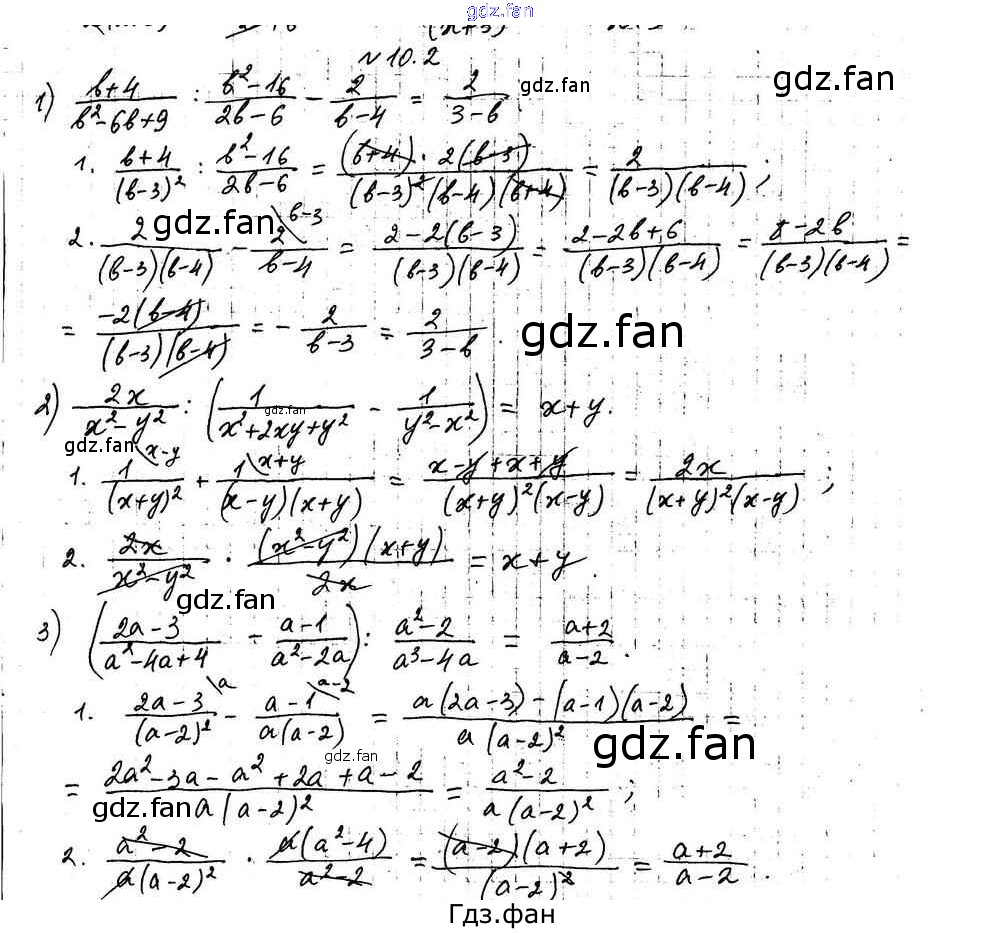 gdz.fan
№10.2
gdz.fan
1) (b+4)/(b²-6b+9) : (b²-16)/(2b-6) - 2/(b-4) = 2/(3-b).
1. (b+4)/(b-3)² : (b²-16)/(2b-6) = ((b+4)·2(b-3))/((b-3)²(b-4)(b+4)) = 2/((b-3)(b-4));
gdz.fan
2. 2/((b-3)(b-4)) - 2\b-3/(b-4) = (2-2(b-3))/((b-3)(b-4)) = (2-2b+6)/((b-3)(b-4)) = (8-2b)/((b-3)(b-4)) =
= (-2(b-4))/((b-3)(b-4)) = - 2/(b-3) = 2/(3-b).
gdz.fan
2) 2x/(x²-y²) : (1/(x²+2xy+y²) - 1/(y²-x²)) = x+y.
gdz.fan
gdz.fan
1. 1\x-y/(x+y)² + 1\x+y/((x-y)(x+y)) = (x-y+x+y)/((x+y)²(x-y)) = 2x/((x+y)²(x-y));
2. 2x/(x²-y²) · ((x²-y²)(x+y))/2x = x+y.
gdz.fan
3) ((2a-3)/(a²-4a+4) - (a-1)/(a²-2a)) : (a²-2)/(a³-4a) = (a+2)/(a-2).
1. (2a-3)\a/(a-2)² - (a-1)\a-2/(a(a-2)) = (a(2a-3)-(a-1)(a-2))/(a(a-2)²) =
gdz.fan
gdz.fan
= (2a²-3a-a²+2a+a-2)/(a(a-2)²) = (a²-2)/(a(a-2)²);
gdz.fan
2. (a²-2)/(a(a-2)²) · (a(a²-4))/(a²-2) = ((a-2)(a+2))/(a-2)² = (a+2)/(a-2).
Гдз.фан